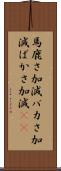 馬鹿さ加減バカさ加
減ばかさ加減××